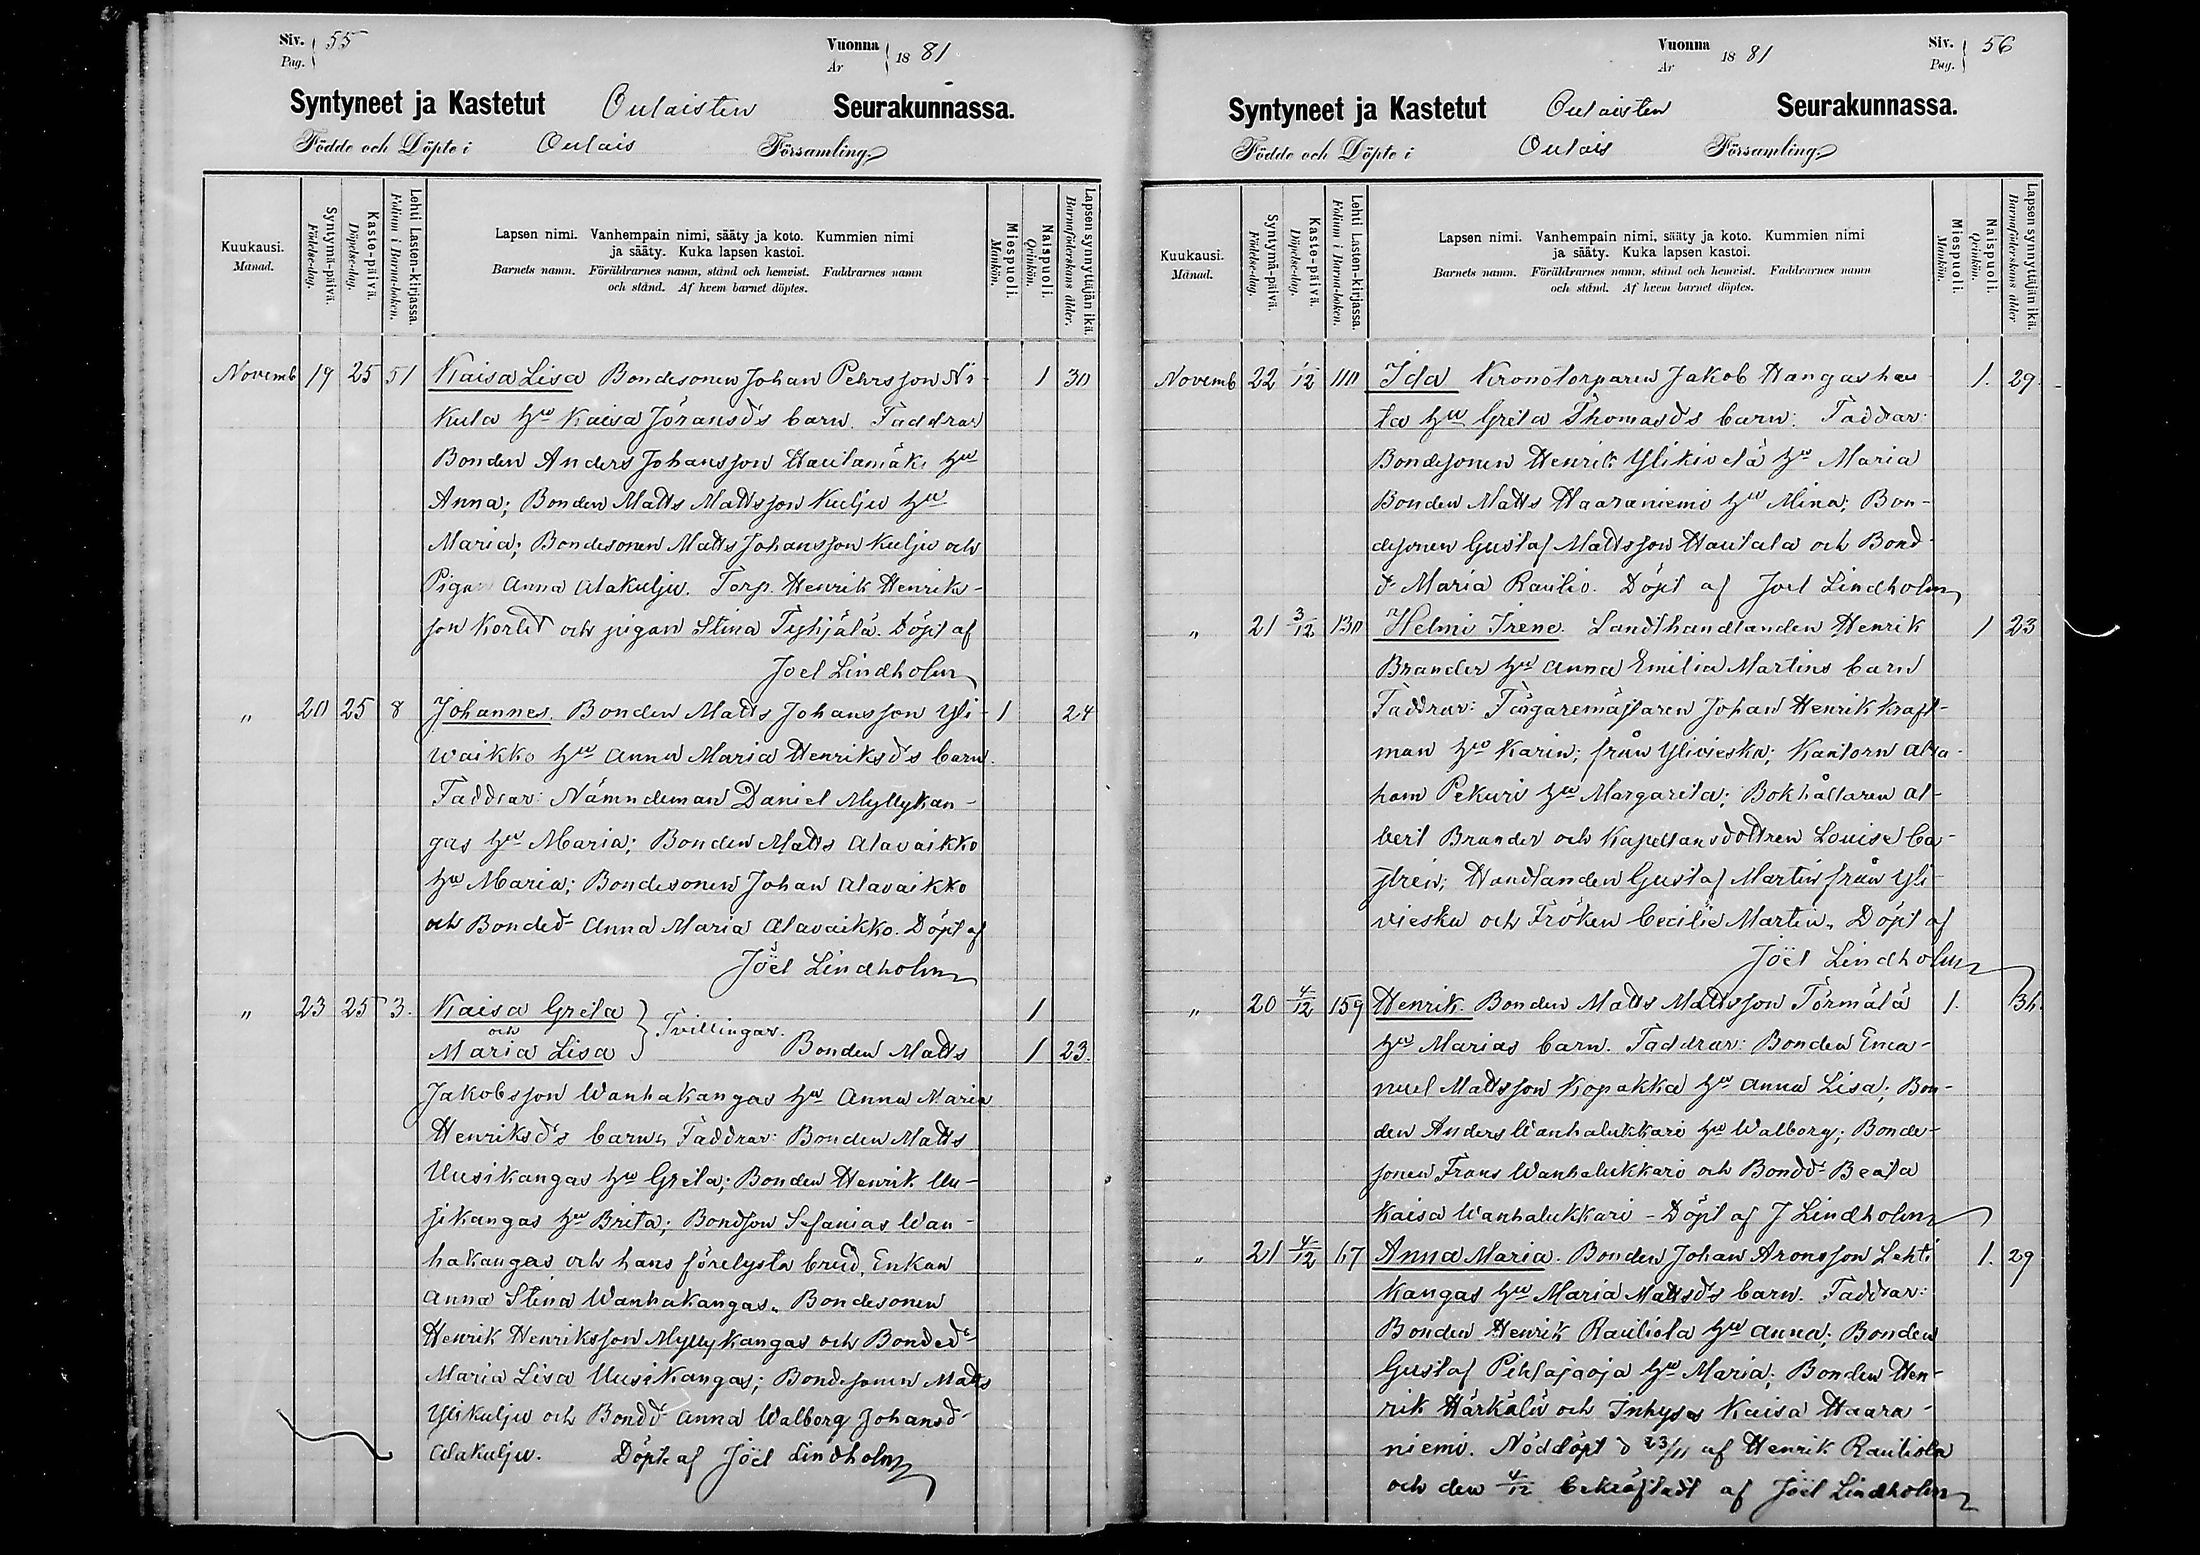 Siv. 55
Pag.
Vuonna 1881
År
Syntyneet ja Kastetut Oulaisten Seurakunnassa.
Födde och Döpte i Oulais Församling.
Kuukausi.
Månad.
Syntymä-päivä.
Födelse-dag.
Kaste-päivä.
Döpelse-dag.
Lehti Lasten-kirjassa.
Folium i Barna-boken.
Lapsen nimi. Vanhempain nimi, sääty ja koto. Kummien nimi
ja sääty. Kuka lapsen kastoi.
Barnets namn. Föräldrarnes namn, stånd och hemvist. Faddrarnes namn
och stånd. Af hvem barnet döptes.
Miespuoli.
Mankön.
Naispuoli.
Qvinkön.
Lapsen synnyttäjän ikä.
Barnaföderskans ålder.
Novemb 19 25 51 Kaisa Lisa Bondesonen Johan Pehrsson Ni- 1 30
kula hu Kaisa Jöransd's barn. Faddrar
Bonden Anders Johansson Hautamäki hu
Anna; Bonden Matts Mattsson Kulju hu
Maria; Bondesonen Matts Johansson Kulju och
Pigan Anna Alakulju. Torp. Henrik Henriks-
son och pigan Stina Tyhjälä. Döpt af
Joel Lindholm
" 20 25 8 Johannes. Bonden Matts Johansson Yli- 1 24
waikko hu Anna Maria Henriksd's barn.
Faddrar: Nämndeman Daniel Myllykan-
gas hu Maria; Bonden Matts Alavaikko
hu Maria; Bondesonen Johan Alavaikko
och Bonded Anna Maria Alavaikko. Döpt af
Joël Lindholm
" 23 25 3. Kaisa Greta 1
och Tvillingar.
Maria Lisa Bonden Matts 1 23.
Jakobsson Wanhakangas hu Anna Maria
Henriksd's barn, Faddrar: Bonden Matts
Uusikangas hu Greta; Bonden Henrik Uu-
sikangas hu Brita; Bondson Sefanias Wan-
hakangas och hans förelysta brud, Enkan
Anna Stina Wanhakangas. Bondesonen
Henrik Henriksson Myllykangas och Bonded
Maria Lisa Uusikangas; Bondesonen Matts
Ylikulju och Bondd Anna Walborg Johansd
Alakulju. Döpte af Joël Lindholm
Vuonna 1881
År
Siv. 56
Pag.
Syntyneet ja Kastetut Oulaisten Seurakunnassa.
Födde och Döpte i Oulais Församling.
Kuukausi.
Månad.
Syntymä-päivä.
Födelse-dag.
Kaste-päivä.
Döpelse-dag.
Lehti Lasten-kirjassa.
Folium i Barna-boken.
Lapsen nimi. Vanhempain nimi, sääty ja koto. Kummien nimi
ja sääty. Kuka lapsen kastoi.
Barnets namn. Föräldrarnes namn, stånd och hemvist. Faddrarnes namn
och stånd. Af hvem barnet döptes.
Miespuoli.
Mankön.
Naispuoli.
Qvinkön.
Lapsen synnyttäjän ikä.
Barnaföderskans ålder
Novemb 22 110 Ida Kronotorparen Jakob Hangasha- 1. 29.
ta hu Greta Thomasd's barn. Faddrar:
Bondesonen Henrik Ylikivelä hu Maria
Bonden Matts Haaraniemi hu Mina; Bon-
desonen Gustaf Mattsson Hautala och Bond
d Maria Rautio. Döpt af Joel Lindholm
" 21 3/12 130 Helmi Irene. Landthandlanden Henrik 1 23
Brander hu Anna Emilia Martins barn
Faddrar: Färgaremästaren Johan Henrik Kraft-
man hu Karin; från Ylivieska; Kantorn Abra-
ham Pekuri hu Margareta; Bokhållaren Al-
bert Brander och Kapellansdottren Louise Ca-
strén; Handlanden Gustaf Martin från Yli-
vieska och Fröken Cecilie Martin. Döpt af
Joël Lindholm
" 20 4/12 159 Henrik. Bonden Matts Mattsson Törmälä 1.
hu Marias barn. Faddrar: Bonden Ema-
nuel Mattsson Kopakka hu Anna Lisa; Bon-
den Anders Wanhalukkari hu Walborg; Bonde-
sonen Frans Wanhalukkari och Bondd Beata
Kaisa Wanhalukkari – Döpt af J Lindholm
" 21 4/12 Anna Maria. Bonden Johan Aronsson Lehti 1. 29
kangas hu Maria Mattsd's barn. Faddrar:
Bonden Henrik Rautiola hu Anna; Bonden
Gustaf Pihlajaoja hu Maria; Bonden Hen-
rik Härkälä och Inhyses Kaisa Haara-
niemi. Nöddöpt d 23/11 af Henrik Rautiola
och den 4/12 bekräftadt af Joël Lindholm